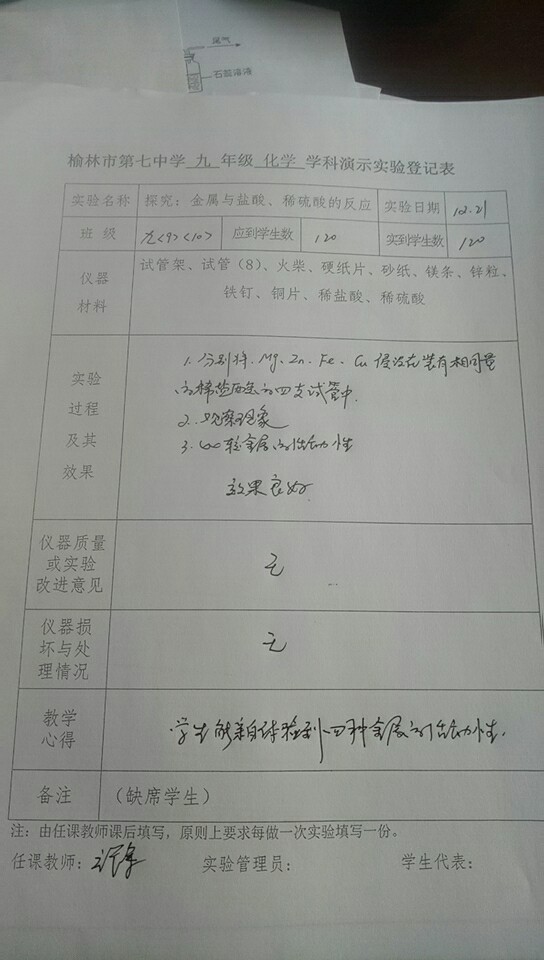 尾气
石蕊溶液
榆林市第七中学 九 年级 化学 学科演示实验登记表
实验名称 探究：金属与盐酸、稀硫酸的反应 实验日期 10.21
班 级 九<9><10> 应到学生数 120 实到学生数 120
仪器
材料
试管架、试管（8）、火柴、硬纸片、砂纸、镁条、锌粒、
铁钉、铜片、稀盐酸、稀硫酸
实验
过程
及其
效果
1. 分别将 Mg、Zn、Fe、Cu 浸没在装有相同量
的稀盐酸的四支试管中.
2. 观察现象
3. 比较金属的活动性
效果良好
仪器质量
或实验
改进意见
无
仪器损
坏与处
理情况
无
教学
心得
学生能亲自体验到四种金属的活动性.
备注 （缺席学生）
注：由任课教师课后填写，原则上要求每做一次实验填写一份。
任课教师： 实验管理员： 学生代表：